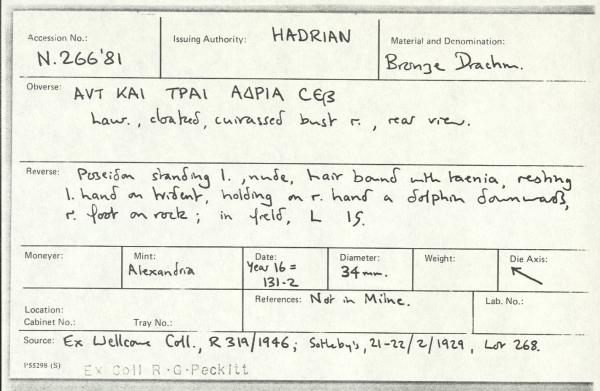 Accession No.: N.266'81
Issuing Authority: HADRIAN
Material and Denomination: Bronze Drachm.
Obverse: ΑVΤ ΚΑΙ ΤΡΑΙ ΑΔΡΙΑ CЄβ
Laur., cloaked, cuirassed bust r., rear view.
Reverse: Poseidon standing l., nude, hair bound with taenia, resting
l. hand on trident, holding on r. hand a dolphin downwards,
r. foot on rock; in field, L Iς.
Moneyer:
Mint: Alexandria
Date: Year 16 =
131-2
Diameter: 34mm.
Weight:
Die Axis: ↖
Location:
Cabinet No.: Tray No.:
References: Not in Milne.
Lab. No.:
Source: Ex Wellcome Coll., R 319/1946; Sotheby's, 21-22/2/1929, Lot 268.
P55298 (S)
Ex Coll R·G·Peckitt